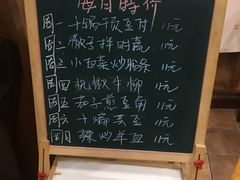 每日时行
周一 干锅千页豆付 11元
周二 馓子拌时蔬 11元
周三 小白菜炒粉条 11元
周四 杭椒牛柳 11元
周五 茄子煎豆角 11元
周六 干煸芸豆 11元
周日 辣炒羊血 11元